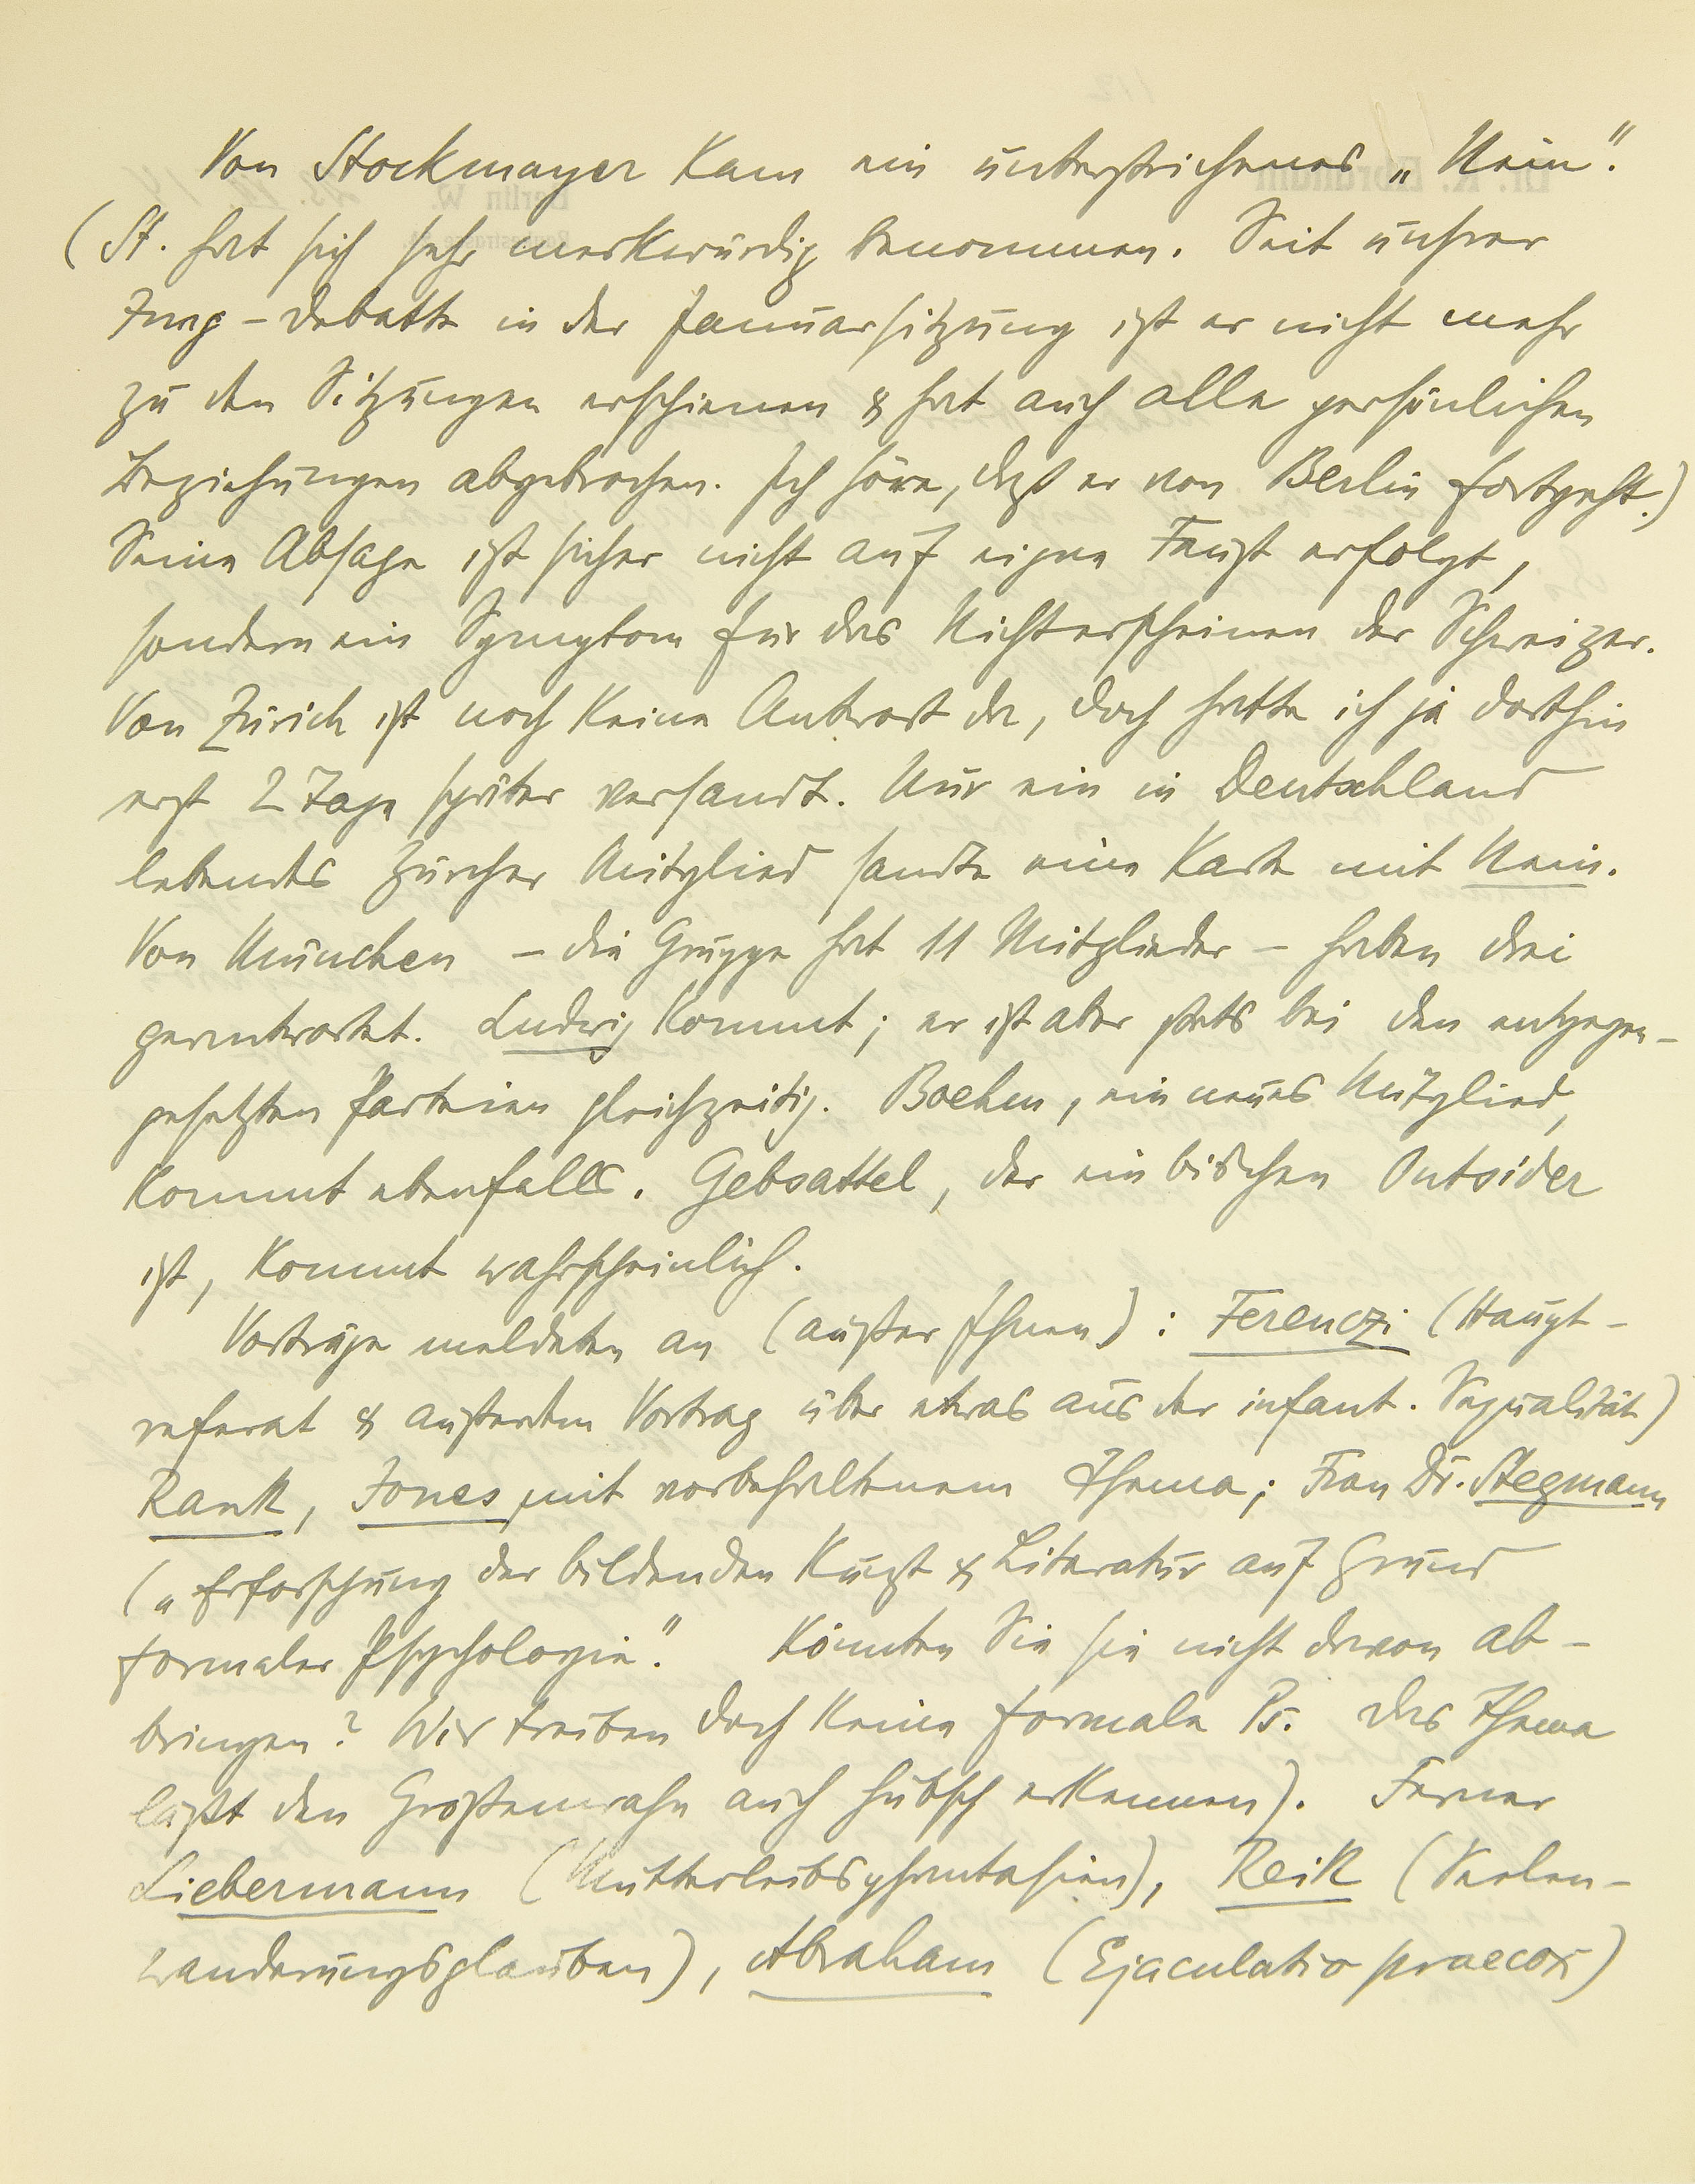 Von Stockmayer kam ein unterstrichenes „Nein“.
(St. hat sich sehr merkwürdig benommen. Seit unsrer
Jung-Debatte in der Januarsitzung ist er nicht mehr
zu den Sitzungen erschienen & hat auch alle persönlichen
Beziehungen abgebrochen. Ich höre, daß er von Berlin fortgeht.)
Seine Absage ist sicher nicht auf eigne Faust erfolgt,
sondern ein Symptom für das Nichterscheinen der Schweizer.
Von Zürich ist noch keine Antwort da, doch hatte ich ja dorthin
erst 2 Tage später versandt. Nur ein in Deutschland
lebendes Zürcher Mitglied sandte eine Karte mit Nein.
Von München – die Gruppe hat 11 Mitglieder – haben drei
geantwortet. Ludwig kommt; er ist aber stets bei den entgegen-
gesetzten Parteien gleichzeitig. Boehm, ein neues Mitglied,
kommt ebenfalls. Gebsattel, der ein bischen Outsider
ist, kommt wahrscheinlich.
Vorträge meldeten an (außer Ihnen): Ferenczi (Haupt-
referat & außerdem Vortrag über etwas aus der infant. Sexualität)
Rank, Jones, mit vorbehaltenem Thema; Frau Dr. Stegmann
(„Erforschung der bildenden Kunst & Literatur auf Grund
formaler Psychologie“. Könnten Sie sie nicht davon ab-
bringen? Wir treiben doch keine formale Ps. Das Thema
läßt den Größenwahn auch hübsch erkennen). Ferner
Liebermann (Mutterleibsphantasien), Reik (Seelen-
wanderungsglauben), Abraham (Ejaculatio praecox)